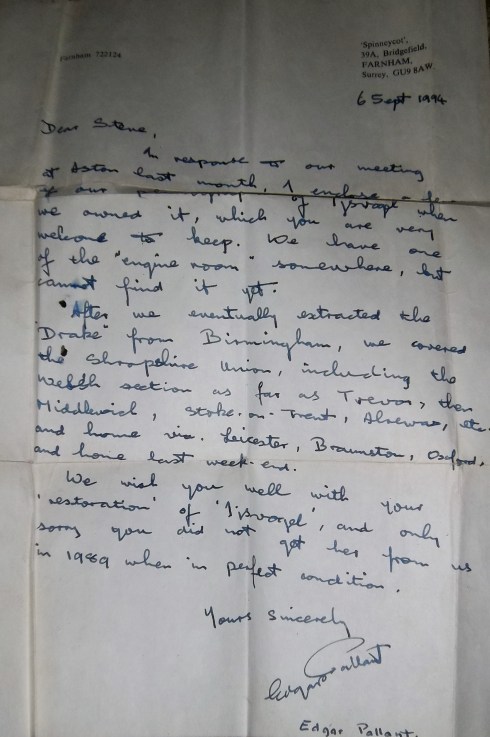 Farnham 722124
'Spinneycot',
39A, Bridgefield,
FARNHAM,
Surrey, GU9 8AW
6 Sept 1994
Dear Steve,
In response to our meeting
at Aston last month, I enclose a
of our of 'Ijsvogel' when
we owned it, which you are very
welcome to keep. We have one
of the "engine room" somewhere, but
cannot find it yet.
After we eventually extracted the
'Drake' from Birmingham, we covered
the Shropshire Union, including the
Welsh section as far as Trevor, then
Middlewich, Stoke-on-Trent, Alrewas, etc.
and home via. Leicester, Braunston, Oxford,
and home last week-end.
We wish you well with your
'restoration' of 'Ijsvogel', and only
sorry you did not get her from us
in 1989 when in perfect condition.
Yours sincerely
Edgar Pallant
Edgar Pallant.